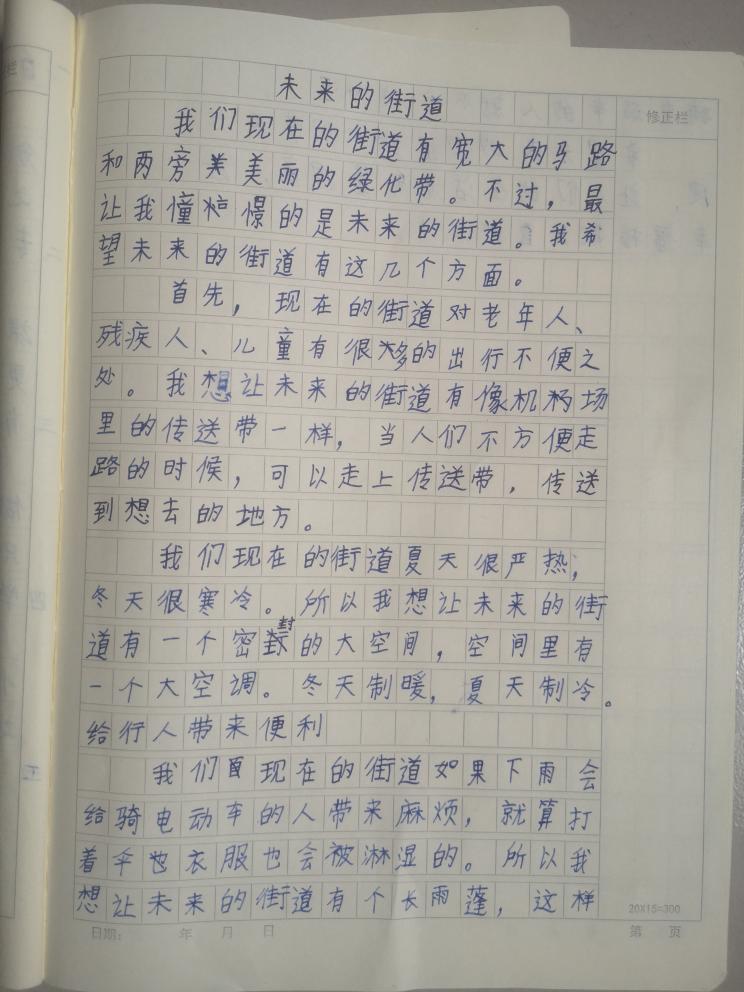 未来的街道
修正栏
我们现在的街道有宽大的马路
和两旁美美丽的绿化带。不过，最
让我憧憬的是未来的街道。我希
望未来的街道有这几个方面。
首先，现在的街道对老年人、
残疾人、儿童有很多的出行不便之
处。我想让未来的街道有像机场
里的传送带一样，当人们不方便走
路的时候，可以走上传送带，传送
到想去的地方。
我们现在的街道夏天很严热，
冬天很寒冷。所以我想让未来的街
道有一个密封的大空间，空间里有
一个大空调。冬天制暖，夏天制冷。
给行人带来便利
我们现在的街道如果下雨会
给骑电动车的人带来麻烦，就算打
着伞也衣服也会被淋湿的。所以我
想让未来的街道有个长雨蓬，这样
20X15=300
日期： 年 月 日 第 页